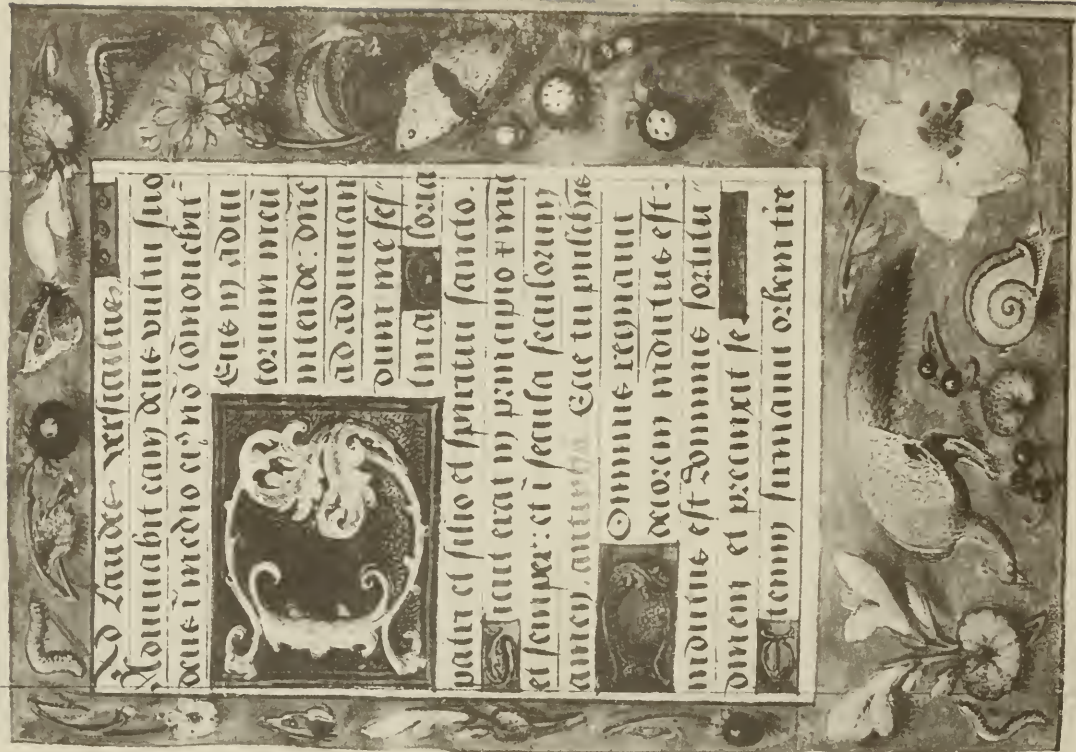 Ad Laudes versiculus.
Adiuuabit eam deus vultu suo
deus ī medio eiꝯ nō cōmouebit̄
DEus in adiu
torium meū
intende. dn̄e
ad adiuuan
dum me fes-
tina Gloria
patri et filio et spiritui sancto.
Sicut erat in principio et nūc
et semper: et ī secula seculorum
amen. Ecce tu pulchra
Ominus regnauit
decorem indutus est:
indutus est dominus fortitu-
dinem et precinxit se
Etenim firmauit orbem tre